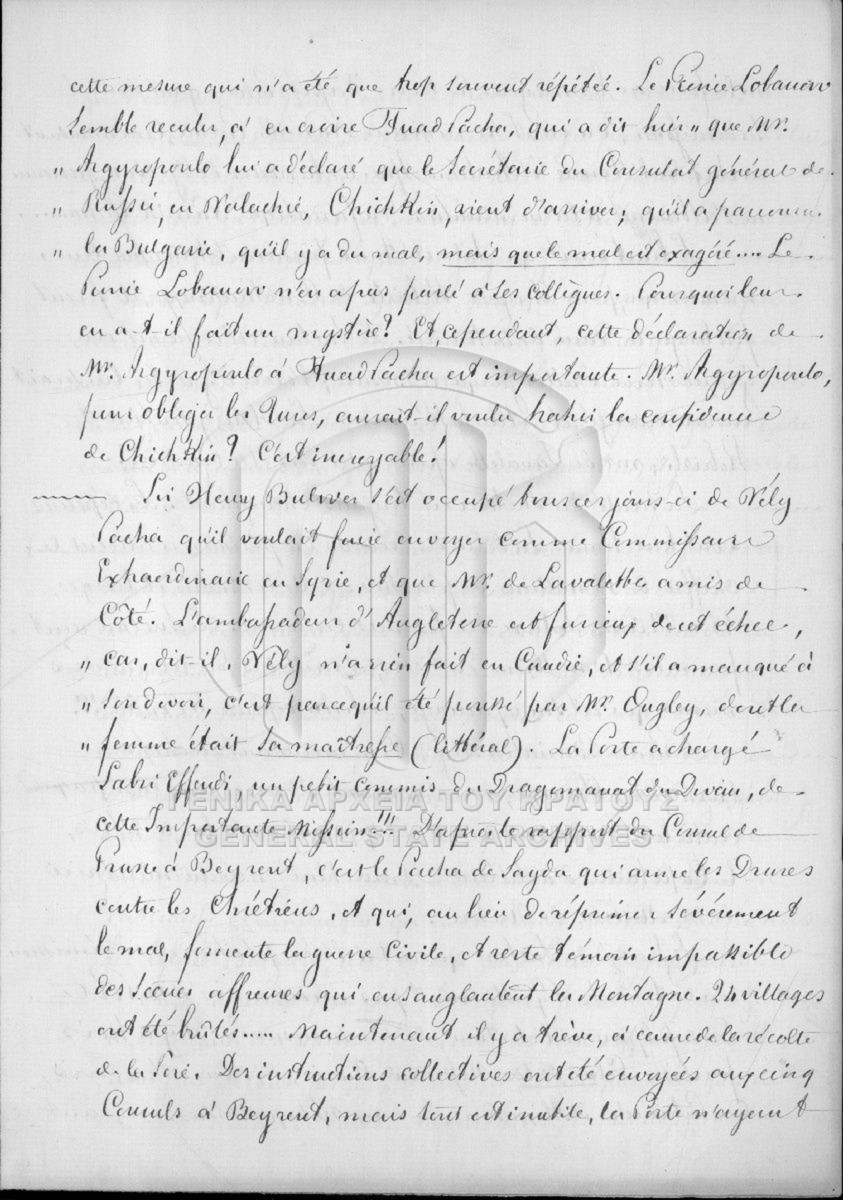 cette mesure qui n'a été que trop souvent répétée. Le Prince Lobanow
semble reculer, à en croire Fuad Pacha, qui a dit hier „ que Mr.
„ Argyropoulo lui a déclaré que le Secrétaire du Consulat général de
„ Russie, en Valachie, Chichkin, vient d'arriver; qu'il a parcouru
„ la Bulgarie, qu'il y a du mal, mais que le mal est exagéré.... Le
Prince Lobanow n'en a pas parlé à ses collègues. Pourquoi leur
en a-t-il fait un mystère? Et, cependant, cette déclaration de
Mr. Argyropoulo à Fuad Pacha est importante. Mr. Argyropoulo,
pour obliger les Turcs, aurait-il voulu trahir la confidence
de Chichkin? C'est incroyable!
Sir Henry Bulwer s'est occupé tous ces jours-ci de Vély
Pacha qu'il voulait faire envoyer comme Commissaire
Extraordinaire en Syrie, et que Mr. de Lavalette a mis de
Côté. L'ambassadeur d'Angleterre est furieux de cet échec,
„ car, dit-il, Vély n'a rien fait en Candie, et s'il a manqué à
„ son devoir, c'est parcequ'il été poussé par Mr. Ongley, dont la
„ femme était sa maîtresse (littéral). La Porte a chargé
Sabri Effendi, un petit commis du Dragomanat du Divan, de
cette Importante Mission!!! D'après le rapport du Consul de
Prusse à Beyrout, c'est le Pacha de Sayda qui arme les Druses
contre les Chrétiens, et qui, au lieu de réprimer sévèrement
le mal, fomente la guerre civile, et reste témoin impassible
des scènes affreuses qui ensanglantent la Montagne. 24 villages
ont été brûlés..... Maintenant il y a trêve, à cause de la récolte
de la Soie. Des instructions collectives ont été envoyées aux cinq
Consuls à Beyrout, mais tout est inutile, la Porte n'ayant
ΓΕΝΙΚΑ ΑΡΧΕΙΑ ΤΟΥ ΚΡΑΤΟΥΣ
GENERAL STATE ARCHIVES